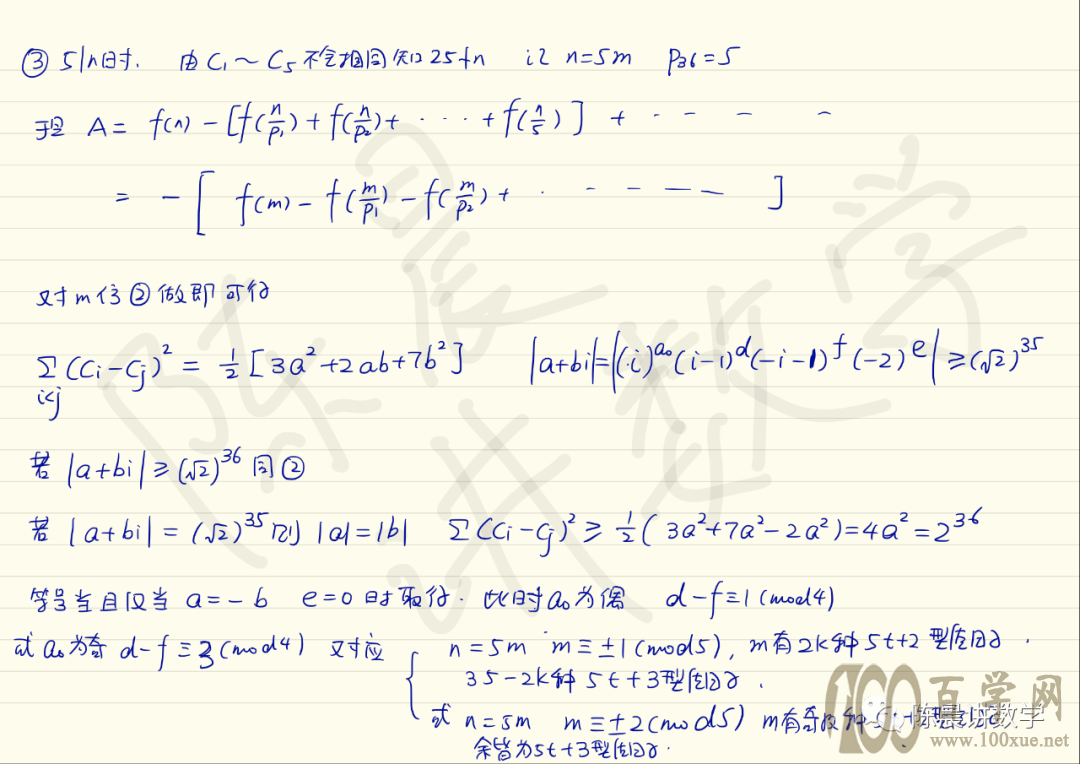 ③ 5|n时. 由 C₁～C₅ 不全相同 知 25∤n 记 n=5m P₃₆=5
A= f(n) - [f(n/p₁)+f(n/p₂)+ · · · +f(n/5)] + · - - -
= - [ f(m) - f(m/p₁) - f(m/p₂)+ · - - - - ]
对m仿②做即可得
∑_{i<j} (Ci-Cj)² = 1/2 [3a²+2ab+7b²] |a+bi|=|(i)^{a₀}(i-1)^d(-i-1)^f(-2)^e| ≥(√2)^35
若 |a+bi|≥(√2)^36 同②
若 |a+bi|=(√2)^35 则 |a|=|b| ∑(Ci-Cj)² ≥ 1/2(3a²+7a²-2a²)=4a²=2^36
等号当且仅当 a=-b e=0 时取得. 此时a₀为偶 d-f≡1(mod4)
或a₀为奇 d-f≡3(mod4) 对应 { n=5m m≡±1(mod5), m有2k种5t+2型质因子.
35-2k种 5t+3型质因子.
或 n=5m m≡±2(mod5) m有奇数种
余皆为5t+3型质因子.
陈景洪数学
100 百学网
www.100xue.net